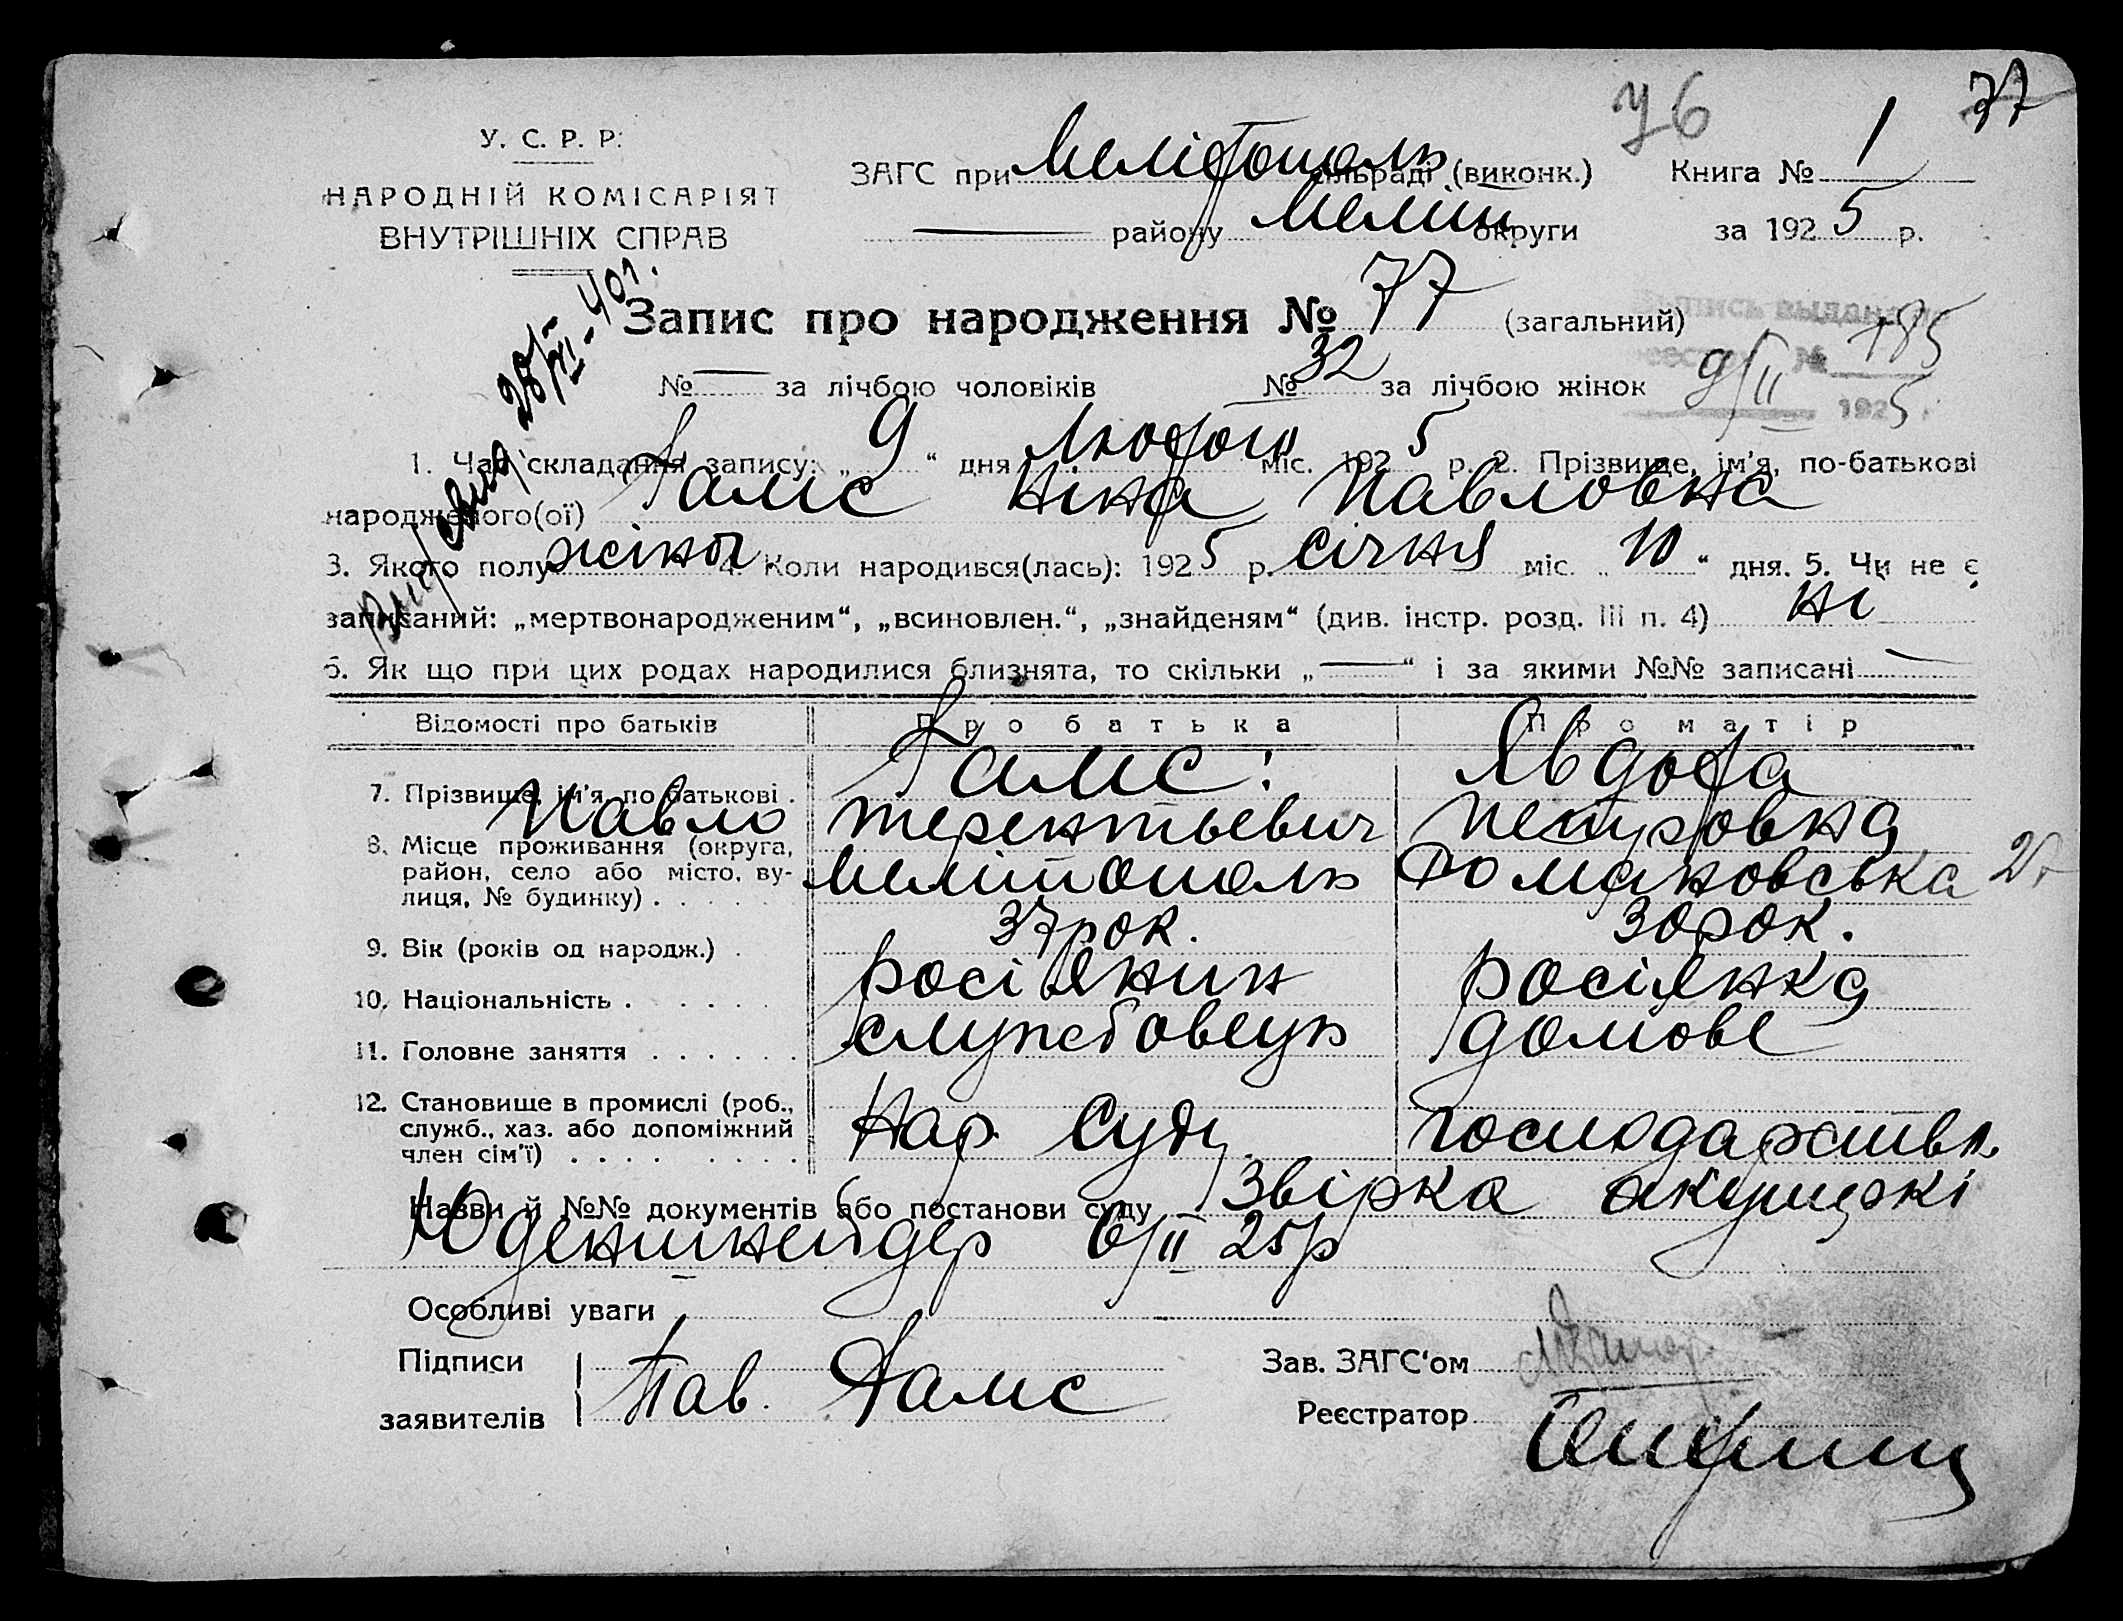 76
77
У. С. Р. Р.
НАРОДНІЙ КОМІСАРІЯТ
ВНУТРІШНІХ СПРАВ
ЗАГС при Мелітополь сільраді (виконк.) Книга № 1
району Меліт округи за 1925 р.
Запис про народження № 77 (загальний)
№ — за лічбою чоловіків № 32 за лічбою жінок
выдана
№ 185
9/II 1925
28/XI-40г.
1. Час складання запису: „9“ дня Лютого міс. 1925 р. 2. Прізвище, ім'я, по-батькові
народженого(ої) Гамс Ніна Павловна
3. Якого полу жіноч 4. Коли народився(лась): 1925 р. січня міс. „10“ дня. 5. Чи не є
записаний: „мертвонародженим“, „всиновлен.“, „знайденям“ (див. інстр. розд. III п. 4) Ні
6. Як що при цих родах народилися близнята, то скільки „—“ і за якими №№ записані —
Відомості про батьків Про батька Про матір
7. Прізвище, ім'я по батькові . Гамс: Явдота
Павло терентьевич Петровна
8. Місце проживання (округа, район, село або місто, вулиця, № будинку) . . . . . . Мелітополь Романовська 25
9. Вік (років од народж.) . 37 рок. 30 рок.
10. Національність . . . . . росіянин росіянка
11. Головне заняття . . . . . . службовець домове
12. Становище в промислі (роб., служб., хаз. або допоміжний член сім'ї) . . . . . . . . Нар. Суду господарство
Назви й №№ документів або постанови суду Звірка акушерки
Юденшнейдер 6/II 25р
Особливі уваги
Підписи
заявителів Пав. Гамс
Зав. ЗАГС'ом
Реєстратор